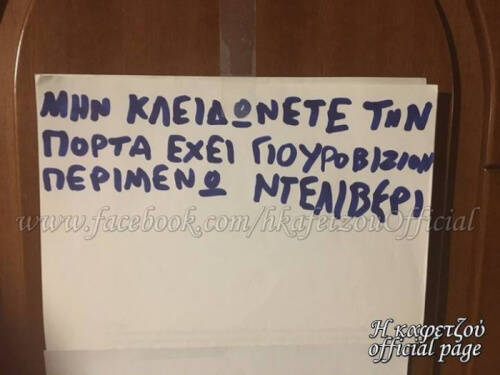 ΜΗΝ ΚΛΕΙΔΩΝΕΤΕ ΤΗΝ
ΠΟΡΤΑ ΕΧΕΙ ΓΙΟΥΡΟΒΙΖΙΟΝ
ΠΕΡΙΜΕΝΩ ΝΤΕΛΙΒΕΡΙ
www.facebook.com/hkafetzouOfficial
Η καφετζού
official page